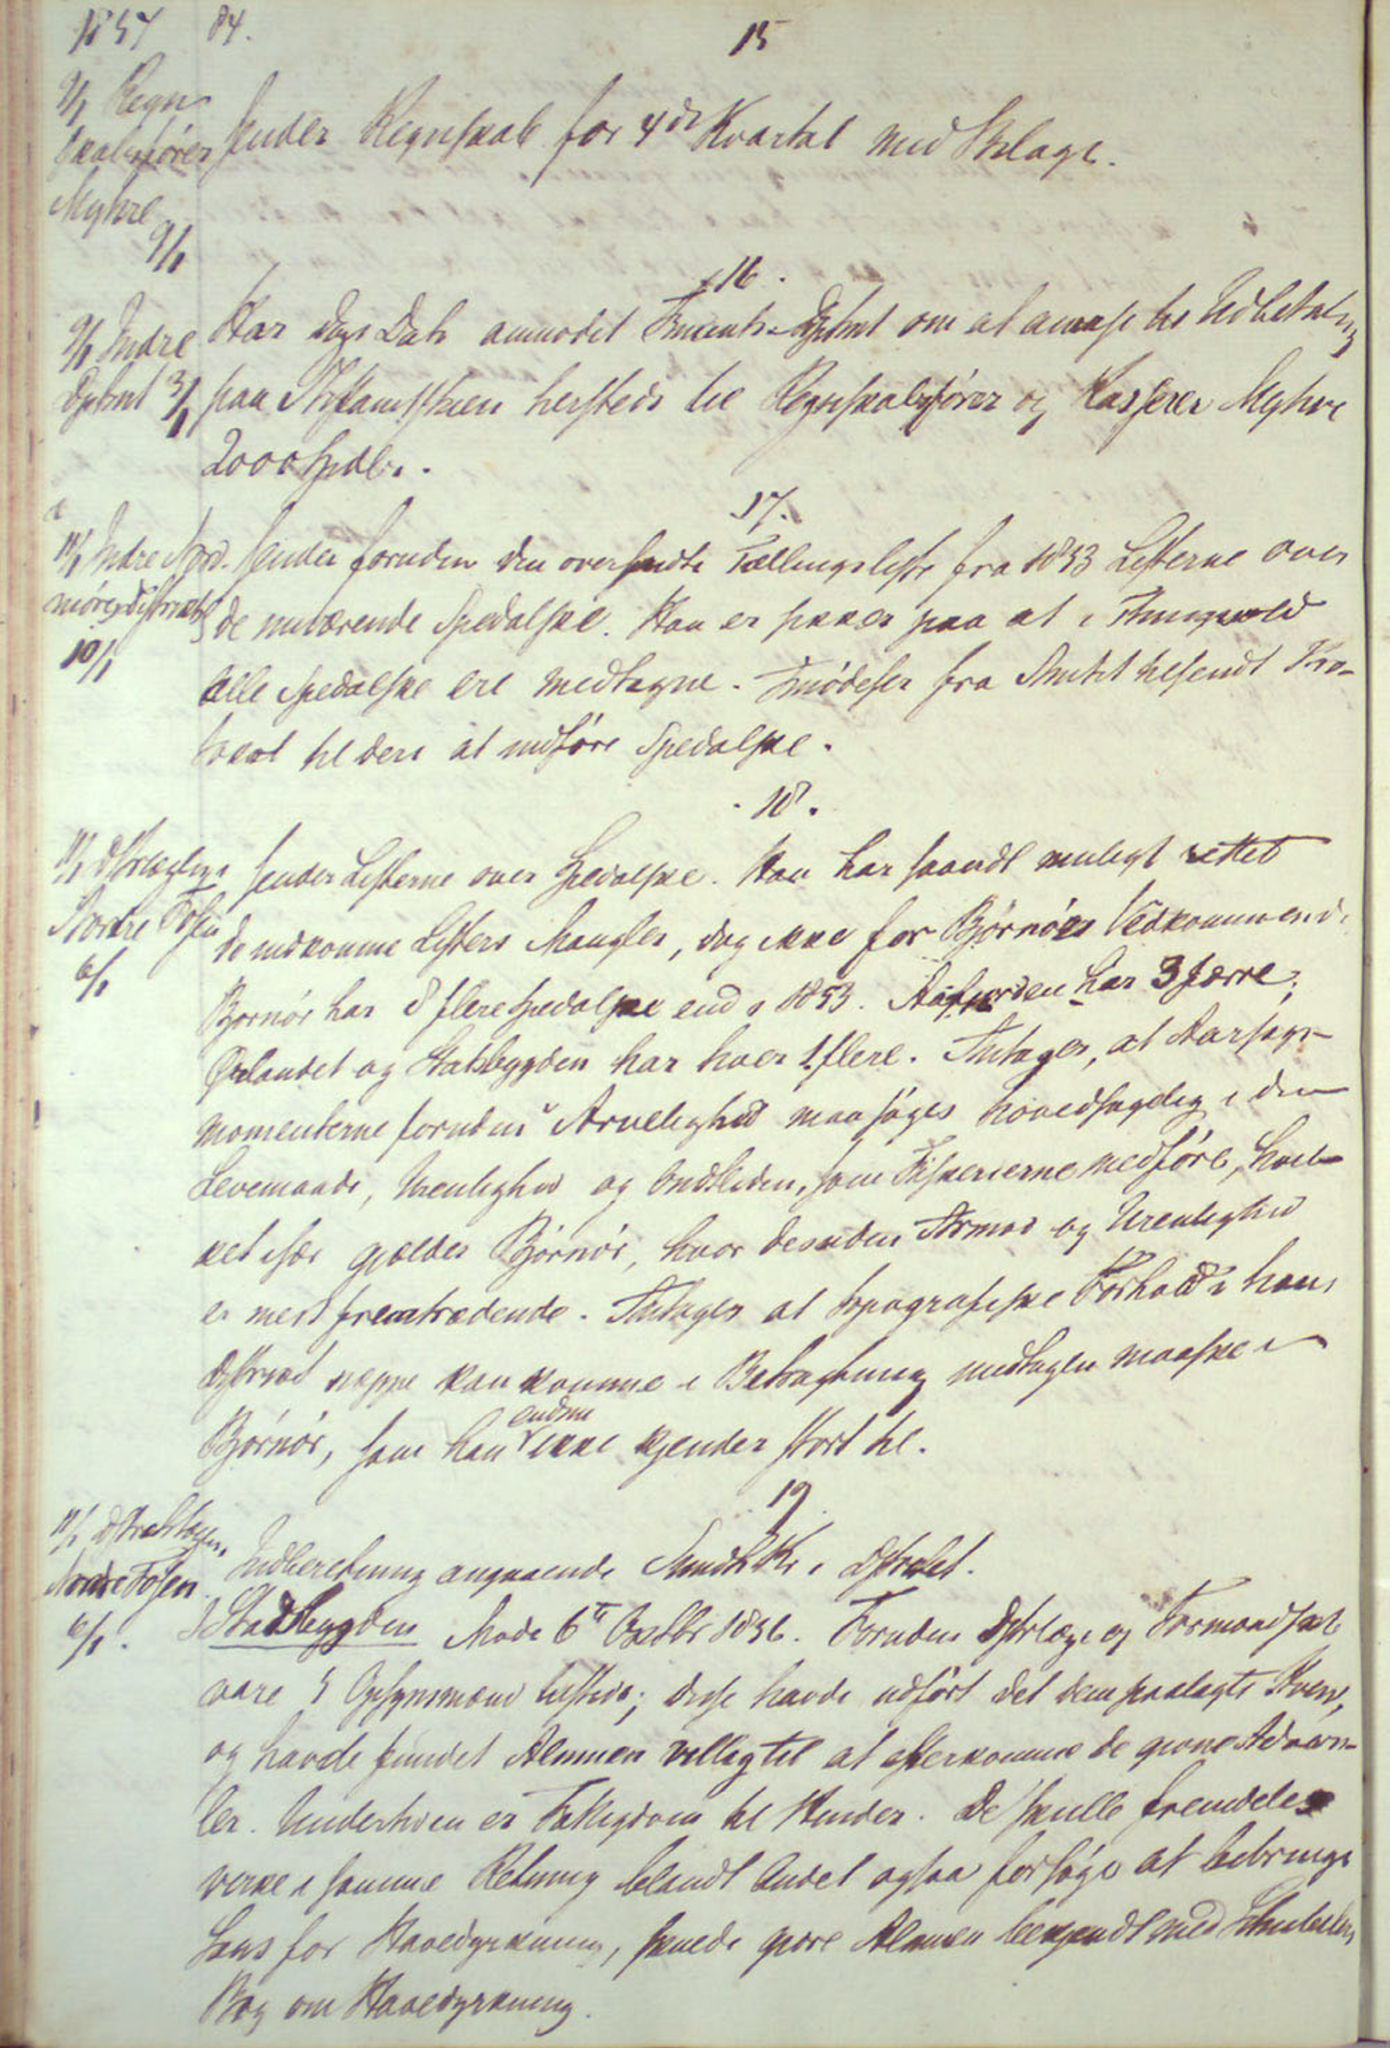 1857 84.
15
9/1 Regn
skabsfører sender Regnskab for 4de Kvartal med Bilage.
Myhre
9/1
16.
9/1 Indre Har Dags Dato anmodet Finants Dptmt om at anvise til Udbetaling
Dptmt 3/1 paa Stiftamtstuen hersteds til Regnskabsfører og Kasserer Myhre
2000 Spdlr.
17.
11/1 Indre Nord- sender foruden den oversendte Tællingsliste fra 1853 Listerne over
møres distrikt de nuværende Spedalske. Han er sikker paa at i
10/1 alle Spedalske ere medtagne. Imødeser fra Amtet tilsendt Pro-
tocol til deri at indføre Spedalske.
18.
11/1 Distrlægen i sender Listerne over Spedalske. Han har saavdt muligt rettet
Nordre Fosen de indkomne Listers Mangler, dog ikke for Bjørnørs Vedkommende.
6/1 Bjørnør har 8 flere Spedalske end i 1853. Aafjorden har 3 færre;
Ørlandet og Stadsbygden har hver 1 flere. Antager, at Aarsags-
momenterne foruden i Arvelighed maa søges hovedsagelig i den
Levemaade, Urenlighed og som Fiskerierne medføre, hvil-
ket især gjælder Bjørnør, hvor desuden Armod og Urenlighed
er mest fremtrædende. Antager at topografiske Forhold i hans
Distrikt neppe kan komme i Betragtning undtagen maaske i
Bjørnør, som han endnu ikke kjender stort til.
19.
11/1 Distriktslægen i Indberetning angaaende Sundh.K. i Distriktet.
Nordre Fosen
6/1. I Stadsbygden Møde 6te Octbr 1856. Foruden Distrlæge og Formandskab
vare 5 Opsynsmænd tilstede; disse havde udført det dem paalagte Hverv,
og havde fundet Almuen villig til at efterkomme de givne Advars-
ler. Undertiden er Fattigdom til Hinder. De skulle fremdeles
virke i samme Retning blandt Andet ogsaa forsøge at bibringe
Sans for Havedyrkning, skulde gjøre Almuen bekjendt med Schübelers
Bog om Havedyrkning.